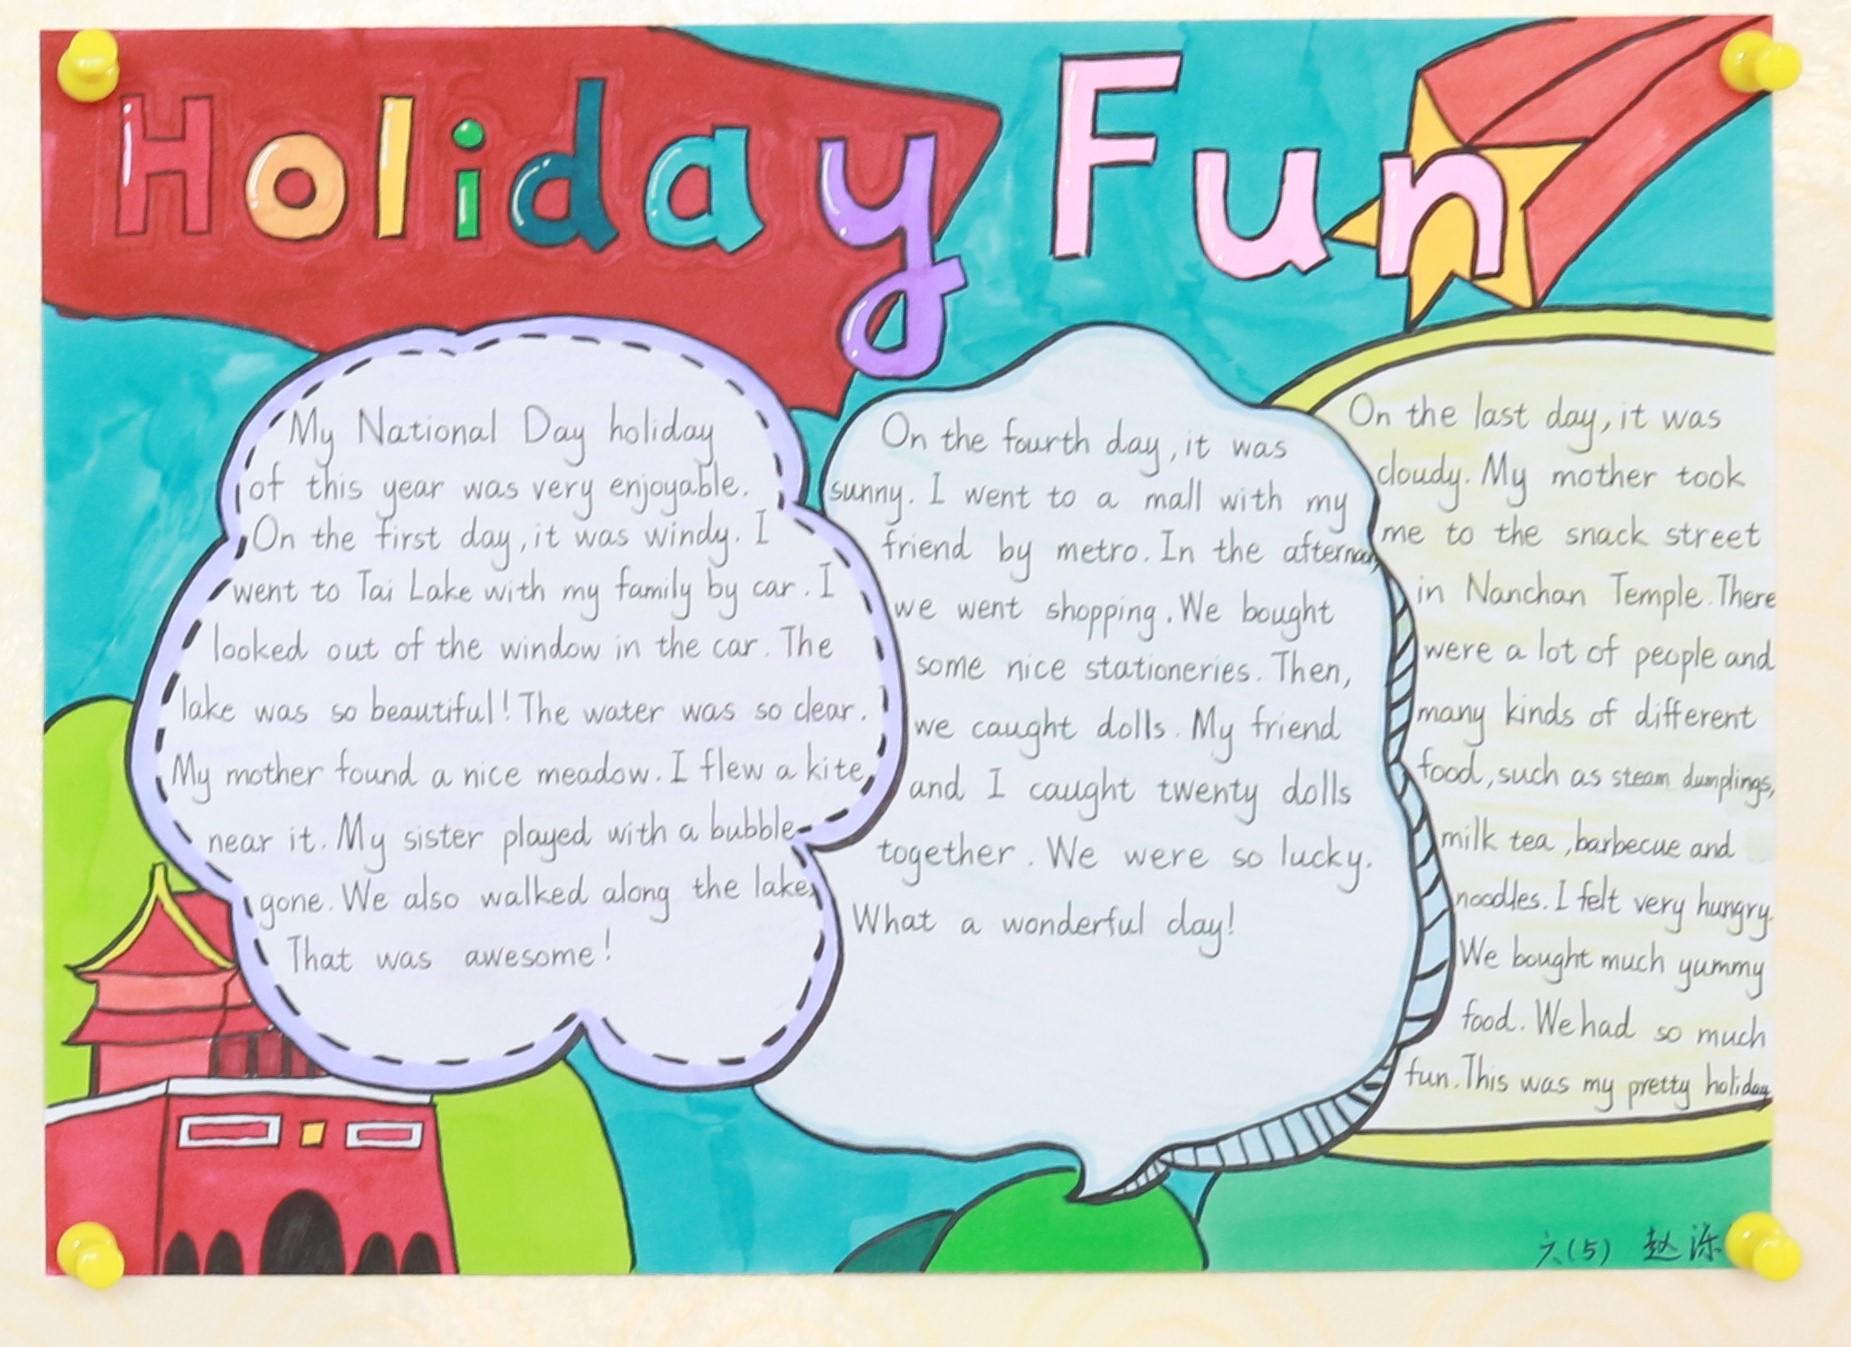 Holiday Fun
My National Day holiday
of this year was very enjoyable.
On the first day, it was windy. I
went to Tai Lake with my family by car. I
looked out of the window in the car. The
lake was so beautiful! The water was so clear.
My mother found a nice meadow. I flew a kite
near it. My sister played with a bubble
gone. We also walked along the lake.
That was awesome!
On the fourth day, it was
sunny. I went to a mall with my
friend by metro. In the afternoon,
we went shopping. We bought
some nice stationeries. Then,
we caught dolls. My friend
and I caught twenty dolls
together. We were so lucky.
What a wonderful day!
On the last day, it was
cloudy. My mother took
me to the snack street
in Nanchan Temple. There
were a lot of people and
many kinds of different
food, such as steam dumplings,
milk tea, barbecue and
noodles. I felt very hungry.
We bought much yummy
food. We had so much
fun. This was my pretty holiday
六(5) 赵泺